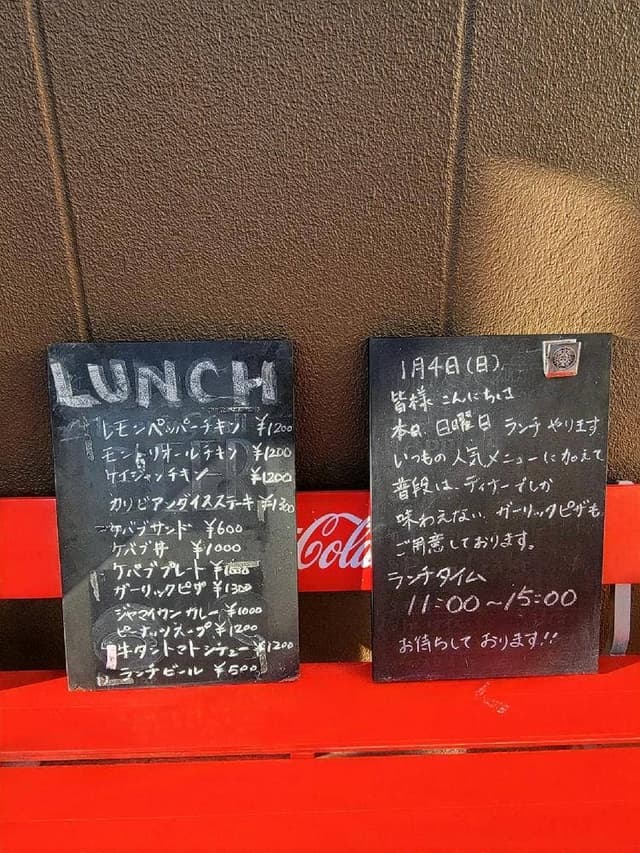 LUNCH
レモンペッパーチキン ¥1200
モントリオールチキン ¥1200
ケイジャンチキン ¥1200
カリビアンダイスステーキ ¥1300
ケバブサンド ¥600
ケバブ丼 ¥1000
ケバブプレート
ガーリックピザ ¥1300
ジャマイカンカレー ¥1000
ピーナッツスープ ¥1200
牛タントマトシチュー ¥1200
ランチビール ¥500
Cola
1月4日(日).
皆様 こんにちは
本日.日曜日 ランチやります
いつもの人気メニューに加えて
普段は、ディナーでしか
味わえない.ガーリックピザも
ご用意しております。
ランチタイム
11:00~15:00
お待ちしております!!